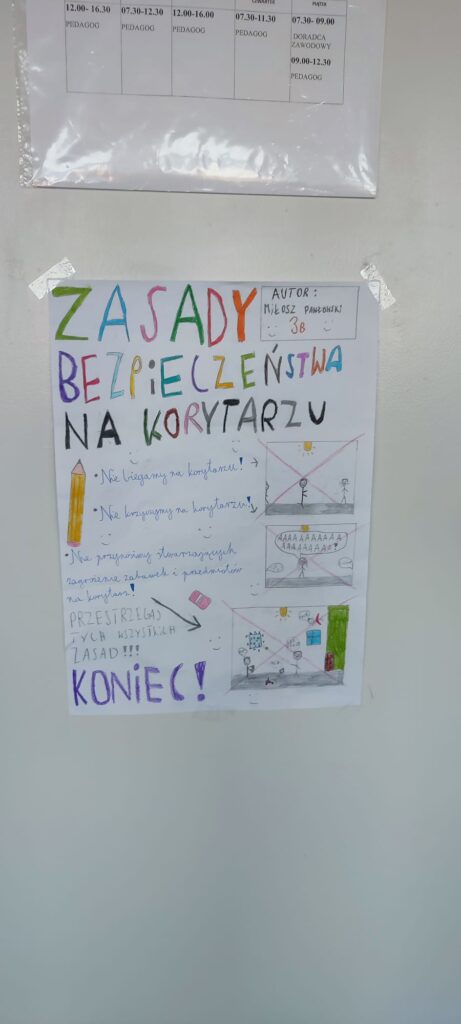 CZWARTEK
PIĄTEK
12.00- 16.30 07.30-12.30 12.00-16.00 07.30-11.30 07.30- 09.00
PEDAGOG PEDAGOG PEDAGOG PEDAGOG DORADCA
ZAWODOWY
09.00-12.30
PEDAGOG
ZASADY
AUTOR:
MIŁOSZ
3B
BEZPiECZEŃSTWA
NA KORYTARZU
• Nie biegamy na korytarzu!
• Nie krzyczymy na korytarzu!
AAAAAAAAAA
AAAAAAAA?
• Nie przynosimy stwarzających
zagrożenie zabawek i przedmiotów
na korytarz!
PRZESTRZEGAJ
TYCH WSZYSTKICH
ZASAD!!!
KONiEC!